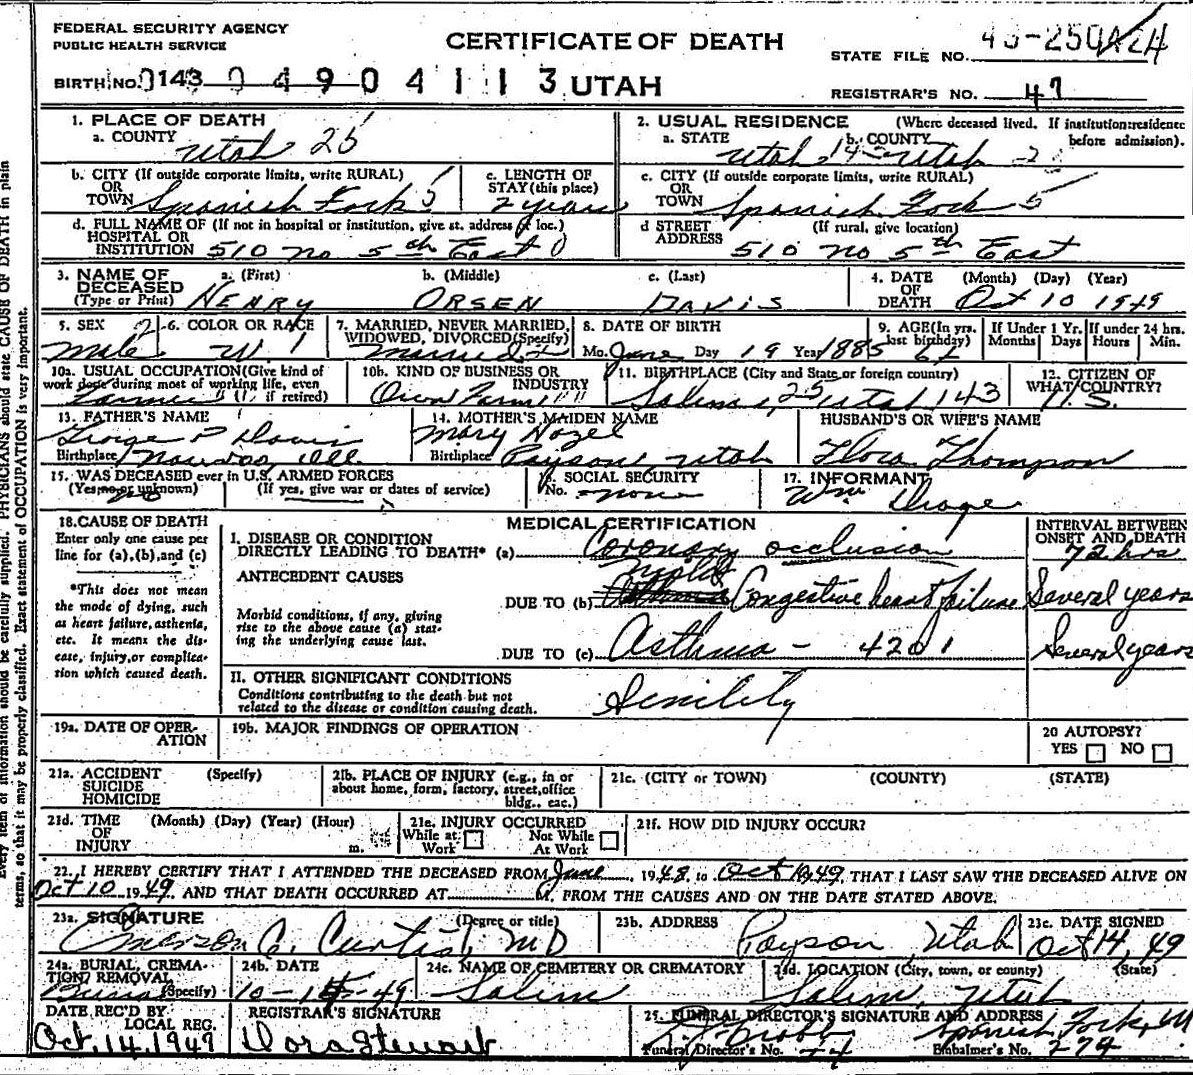 FEDERAL SECURITY AGENCY
PUBLIC HEALTH SERVICE
CERTIFICATE OF DEATH
STATE FILE NO.
BIRTH NO. 0143 04904113 UTAH
REGISTRAR'S NO. 47
1. PLACE OF DEATH
a. COUNTY Utah 25
2. USUAL RESIDENCE (Where deceased lived. If institution:residence before admission).
a. STATE Utah 14 b. COUNTY Utah
b. CITY (If outside corporate limits, write RURAL) OR TOWN Spanish Fork 5
c. LENGTH OF STAY (this place) 2 years
c. CITY (If outside corporate limits, write RURAL) OR TOWN Spanish Fork 5
d. FULL NAME OF (If not in hospital or institution, give st. address or loc.) HOSPITAL OR INSTITUTION 510 no 5th East
d STREET ADDRESS (If rural, give location) 510 no 5th East
3. NAME OF DECEASED (Type or Print) a. (First) HENRY b. (Middle) ORSEN c. (Last) DAVIS
4. DATE OF DEATH (Month) (Day) (Year) Oct 10 1949
5. SEX 2 Male
6. COLOR OR RACE W. 1
7. MARRIED, NEVER MARRIED, WIDOWED, DIVORCED (Specify) Married 2
8. DATE OF BIRTH Mo. June Day 19 Year 1885
9. AGE (In yrs. last birthday) 64
If Under 1 Yr. Months Days
If under 24 hrs. Hours Min.
10a. USUAL OCCUPATION (Give kind of work done during most of working life, even if retired) Farmer
10b. KIND OF BUSINESS OR INDUSTRY Own Farm
11. BIRTHPLACE (City and State or foreign country) Salem, 25 Utah 143
12. CITIZEN OF WHAT COUNTRY? U.S.
13. FATHER'S NAME George P Davis
Birthplace Nauvoo Ill
14. MOTHER'S MAIDEN NAME Mary Nozel
Birthplace Payson, Utah
HUSBAND'S OR WIFE'S NAME
Flora Thompson
15. WAS DECEASED ever in U.S. ARMED FORCES
(Yes, no or unknown) no (If yes, give war or dates of service)
16. SOCIAL SECURITY No. none
17. INFORMANT
Wm
18. CAUSE OF DEATH
Enter only one cause per line for (a), (b), and (c)
*This does not mean the mode of dying, such as heart failure, asthenia, etc. It means the disease, injury, or complication which caused death.
MEDICAL CERTIFICATION
INTERVAL BETWEEN ONSET AND DEATH
I. DISEASE OR CONDITION DIRECTLY LEADING TO DEATH* (a) Coronary occlusion 72 hrs
ANTECEDENT CAUSES
Morbid conditions, if any, giving rise to the above cause (a) stating the underlying cause last.
DUE TO (b) Mild Congestive heart failure Several years
DUE TO (c) Asthma - 4201 Several years
II. OTHER SIGNIFICANT CONDITIONS
Conditions contributing to the death but not related to the disease or condition causing death.
Senility
19a. DATE OF OPERATION
19b. MAJOR FINDINGS OF OPERATION
20 AUTOPSY?
YES NO
21a. ACCIDENT SUICIDE HOMICIDE (Specify)
21b. PLACE OF INJURY (e.g., in or about home, form, factory, street, office bldg., eac.)
21c. (CITY or TOWN) (COUNTY) (STATE)
21d. TIME OF INJURY (Month) (Day) (Year) (Hour) m.
21e. INJURY OCCURRED
While at Work Not While At Work
21f. HOW DID INJURY OCCUR?
22. I HEREBY CERTIFY THAT I ATTENDED THE DECEASED FROM June, 1948, to Oct 10, 1949, THAT I LAST SAW THE DECEASED ALIVE ON
Oct 10 1949 AND THAT DEATH OCCURRED AT , FROM THE CAUSES AND ON THE DATE STATED ABOVE.
23a. SIGNATURE (Degree or title) Emerson C. Curtis, MD
23b. ADDRESS Payson Utah
23c. DATE SIGNED Oct 14, 49
24a. BURIAL, CREMATION, REMOVAL (Specify) Burial
24b. DATE 10-14-49
24c. NAME OF CEMETERY OR CREMATORY Salem
23d. LOCATION (City, town, or county) (State) Salem, Utah
DATE REC'D BY LOCAL REG. Oct. 14, 1949
REGISTRAR'S SIGNATURE Dora Stewart
25. FUNERAL DIRECTOR'S SIGNATURE AND ADDRESS
Spanish Fork, Ut
Funeral Director's No. 74
Embalmer's No. 274
Every item of information should be carefully supplied. PHYSICIANS should state CAUSE OF DEATH in plain
terms, so that it may be properly classified. Exact statement of OCCUPATION is very important.